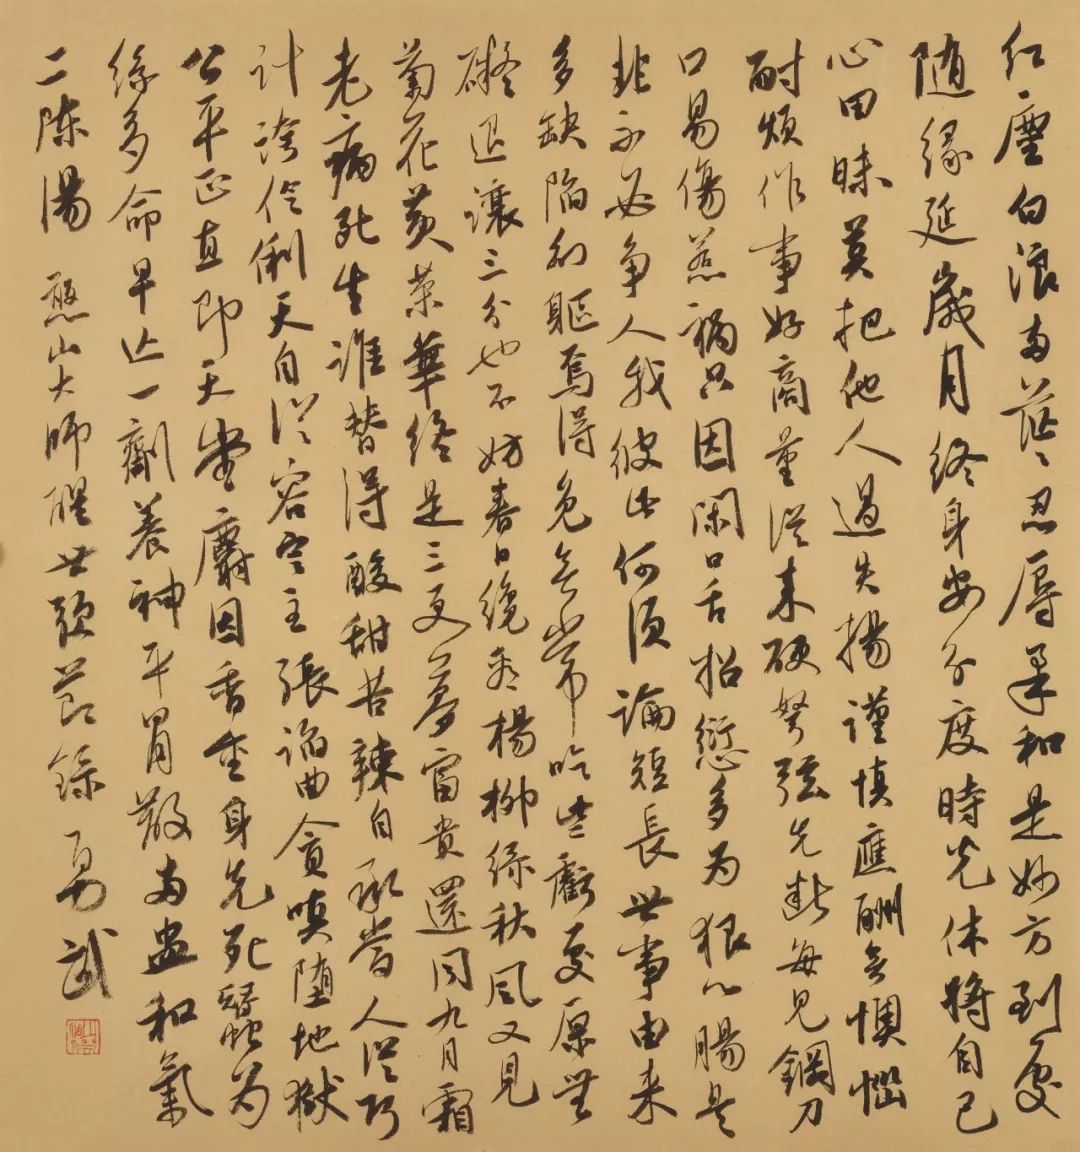 红塵白浪両茫々忍辱柔和是妙方到處
随缘延歲月终身安分度時光休將自己
心田昧莫把他人過失揚謹慎應酬無懊惱
耐烦作事好商量從来硬弩弦先断每见鋼刀
口易傷惹禍只因闲口舌招愆多为狠心腸是
非不必争人我彼此何须論短長世事由来
多缺陷幻軀焉得免無常吃些虧處原無
礙退讓三分也不妨春日纔看楊柳绿秋風又見
菊花黄荣華终是三更夢富贵還同九月霜
老病死生谁替得酸甜苦辣自承當人從巧
计誇伶俐天自從容定主張谄曲貪嗔堕地獄
公平正直即天堂麝因香重身先死蠶为
絲多命早亡一劑养神平胃散両盅和氣
二陈湯 憨山大师醒世歌节錄 勇武